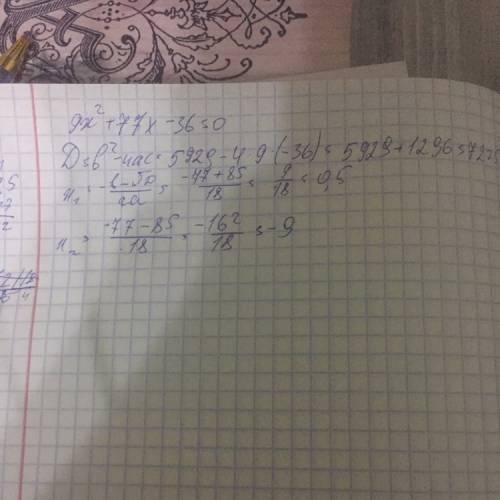 9x²+77x-36=0
D=b²-4ac=5929-4·9·(-36)=5929+1296=7225
x₁=-b-√D/2a=-77+85/18=9/18=0,5
x₂=-77-85/18=-162/18=-9